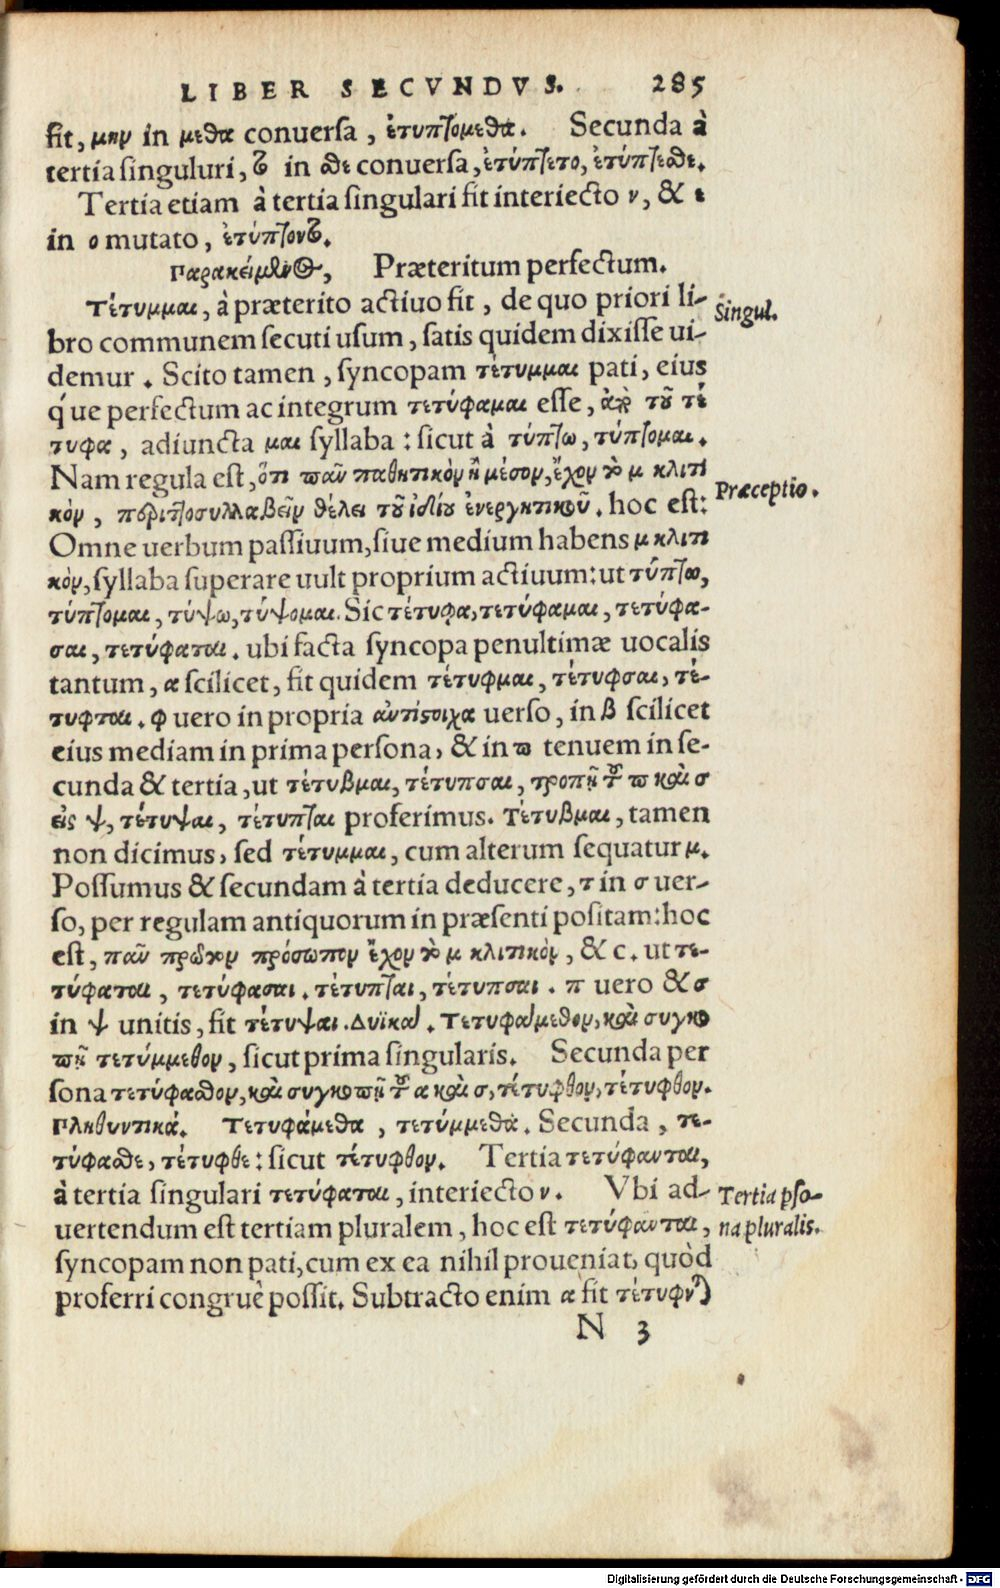 LIBER SECVNDVS. 285
fit, μην in μεθα conuersa, ἐτυπτόμεθα. Secunda à
tertia singuluri, το in σθε conuersa, ἐτύπτετο, ἐτύπτεσθε.
Tertia etiam à tertia singulari fit interiecto ν, & ε
in ο mutato, ἐτύπτοντο.
Παρακείμενος, Præteritum perfectum.
Τέτυμμαι, à præterito actiuo fit, de quo priori li-
Singul.
bro communem secuti usum, satis quidem dixisse ui-
demur. Scito tamen, syncopam τέτυμμαι pati, eius
q́ue perfectum ac integrum τετύφαμαι esse, ἀπὸ τοῦ τέ
τυφα, adiuncta μαι syllaba: sicut à τύπτω, τύπτομαι.
Nam regula est, ὅτι πᾶν παθητικὸν ἢ μέσον, ἔχον τὸ μ κλιτι
κὸν, περιττοσυλλαβεῖν θέλει τοῦ ἰδίου ἐνεργητικοῦ. hoc est:
Præceptio.
Omne uerbum passiuum, siue medium habens μ κλιτι
κὸν, syllaba superare uult proprium actiuum: ut τύπτω,
τύπτομαι, τύψω, τύψομαι. Sic τέτυφα, τετύφαμαι, τετύφα-
σαι, τετύφαται. ubi facta syncopa penultimæ uocalis
tantum, α scilicet, fit quidem τέτυφμαι, τέτυφσαι, τέ-
τυφται. φ uero in propria ἀντίστοιχα uerso, in β scilicet
eius mediam in prima persona, & in π tenuem in se-
cunda & tertia, ut τέτυβμαι, τέτυπσαι, τροπῇ τοῦ π καὶ σ
εἰς ψ, τέτυψαι, τέτυπται proferimus. Τέτυβμαι, tamen
non dicimus, sed τέτυμμαι, cum alterum sequatur μ.
Possumus & secundam à tertia deducere, τ in σ uer-
so, per regulam antiquorum in præsenti positam: hoc
est, πᾶν πρῶτον πρόσωπον ἔχον τὸ μ κλιτικὸν, & c. ut τε-
τύφαται, τετύφασαι. τέτυπται, τέτυπσαι. π uero & σ
in ψ unitis, fit τέτυψαι. Δυϊκά. Τετυφάμεθον, καὶ συγκο
πῇ τετύμμεθον, sicut prima singularis. Secunda per
sona τετύφασθον, καὶ συγκοπῇ τοῦ α καὶ σ, τέτυφθον, τέτυφθον.
Πληθυντικά. Τετυφάμεθα, τετύμμεθα. Secunda, τε-
τύφασθε, τέτυφθε: sicut τέτυφθον. Tertia τετύφανται,
à tertia singulari τετύφαται, interiecto ν. Vbi ad-
Tertia pso-
uertendum est tertiam pluralem, hoc est τετύφανται,
na pluralis.
syncopam non pati, cum ex ea nihil proueniat, quòd
proferri congruè possit. Subtracto enim α fit τέτυφνται
N 3
Digitalisierung gefördert durch die Deutsche Forschungsgemeinschaft - DFG